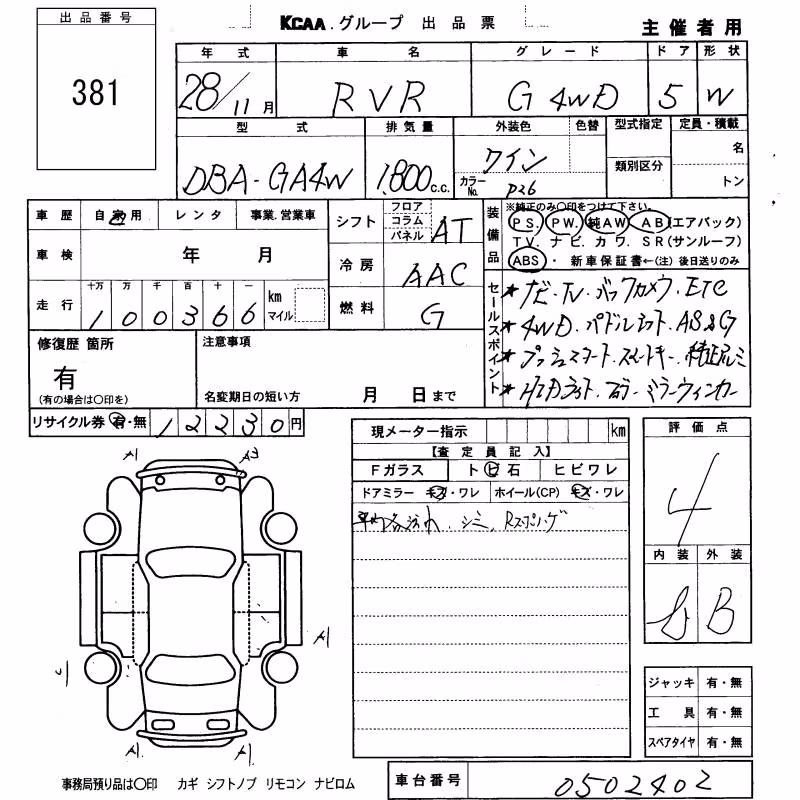 出品番号
381
KCAA.グループ 出品票
主催者用
年式 車名 グレード ドア 形状
28/11月 RVR G 4WD 5 W
型式 排気量 外装色 色替 型式指定 定員・積載
DBA-GA4W 1,800c.c. ワイン
カラーNo. P26
名
類別区分
トン
車歴 自家用 レンタ 事業.営業車
車検 年 月
走行 十万 万 千 百 十 一
100366 km マイル
シフト フロア コラム パネル AT
冷房 AAC
燃料 G
装備品
※純正のみ○印をつけて下さい。
P S. P W. 純A W A B(エアバック)
T V. ナ ビ. カ ワ. S R(サンルーフ)
ABS ・ 新車保証書←(注)後日送りのみ
セールスポイント
★ナビ・TV・バックカメラ・ETC
★4WD.パドルシフト.AS&G
★プッシュスタート.スマートキー.純正アルミ
★HIDライト.フォグ.ミラーウィンカー
修復歴 箇所
有
(有の場合は○印を)
注意事項
名変期日の短い方 月 日まで
リサイクル券 有・無 12230円
現メーター指示 km
【査定員記入】
Fガラス トビ石 ヒビワレ
ドアミラー キズ・ワレ ホイール(CP) キズ・ワレ
シミ、Rスプリング
評価点
4
内装 外装
B
A1 A3
A1
A1 A1
ジャッキ 有・無
工具 有・無
スペアタイヤ 有・無
事務局預り品は○印 カギ シフトノブ リモコン ナビロム
車台番号 0502402